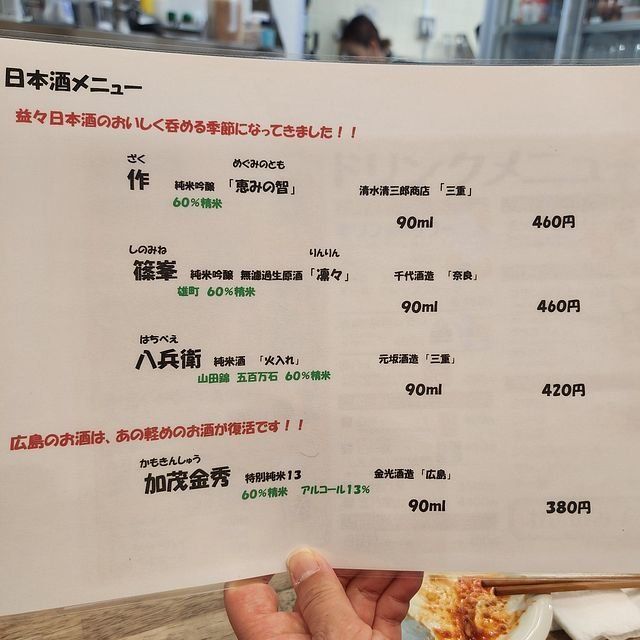 日本酒メニュー
益々日本酒のおいしく呑める季節になってきました！！
ざく めぐみのとも
作 純米吟醸 「恵みの智」 清水清三郎商店 「三重」
60%精米
90ml 460円
しのみね りんりん
篠峯 純米吟醸 無濾過生原酒「凛々」 千代酒造 「奈良」
雄町 60%精米
90ml 460円
はちべえ
八兵衛 純米酒 「火入れ」 元坂酒造「三重」
山田錦 五百万石 60%精米
90ml 420円
広島のお酒は、あの軽めのお酒が復活です！！
かもきんしゅう
加茂金秀 特別純米13 金光酒造「広島」
60%精米 アルコール13%
90ml 380円